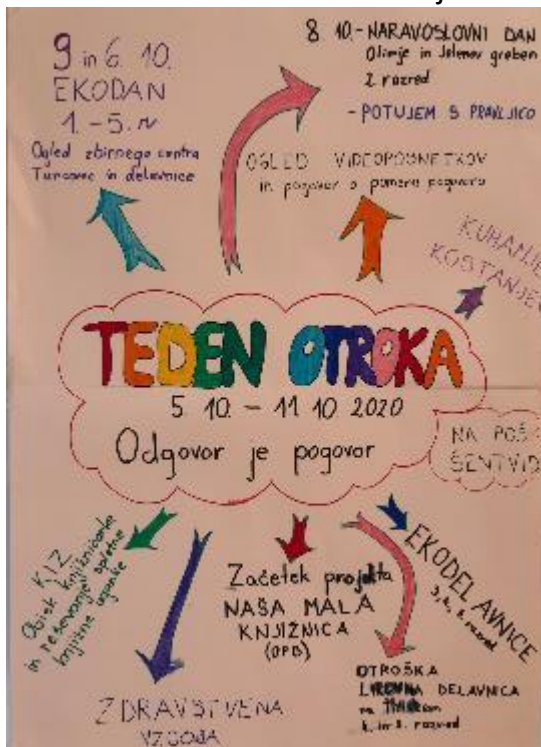 9 in 6. 10.
EKODAN
1. - 5. r
Ogled zbirnega centra
Tuncovec in delavnice
8. 10. - NARAVOSLOVNI DAN
Olimje in Jelenov greben
2. razred
- POTUJEM S PRAVLJICO
OGLED VIDEOPOSNETKOV
in pogovor o pomenu pogovora
KUHANJE
KOSTANJEV
TEDEN OTROKA
5. 10. - 11. 10. 2020
Odgovor je pogovor
NA POŠ
ŠENTVID
KIZ
Obisk knjižničarke
in reševanje spletne
knjižne uganke
ZDRAVSTVENA
VZGOJA
Začetek projekta
NAŠA MALA
KNJIŽNICA
(OPB)
EKODELAVNICE
razred
OTROŠKA
LIKOVNA DELAVNICA
razred